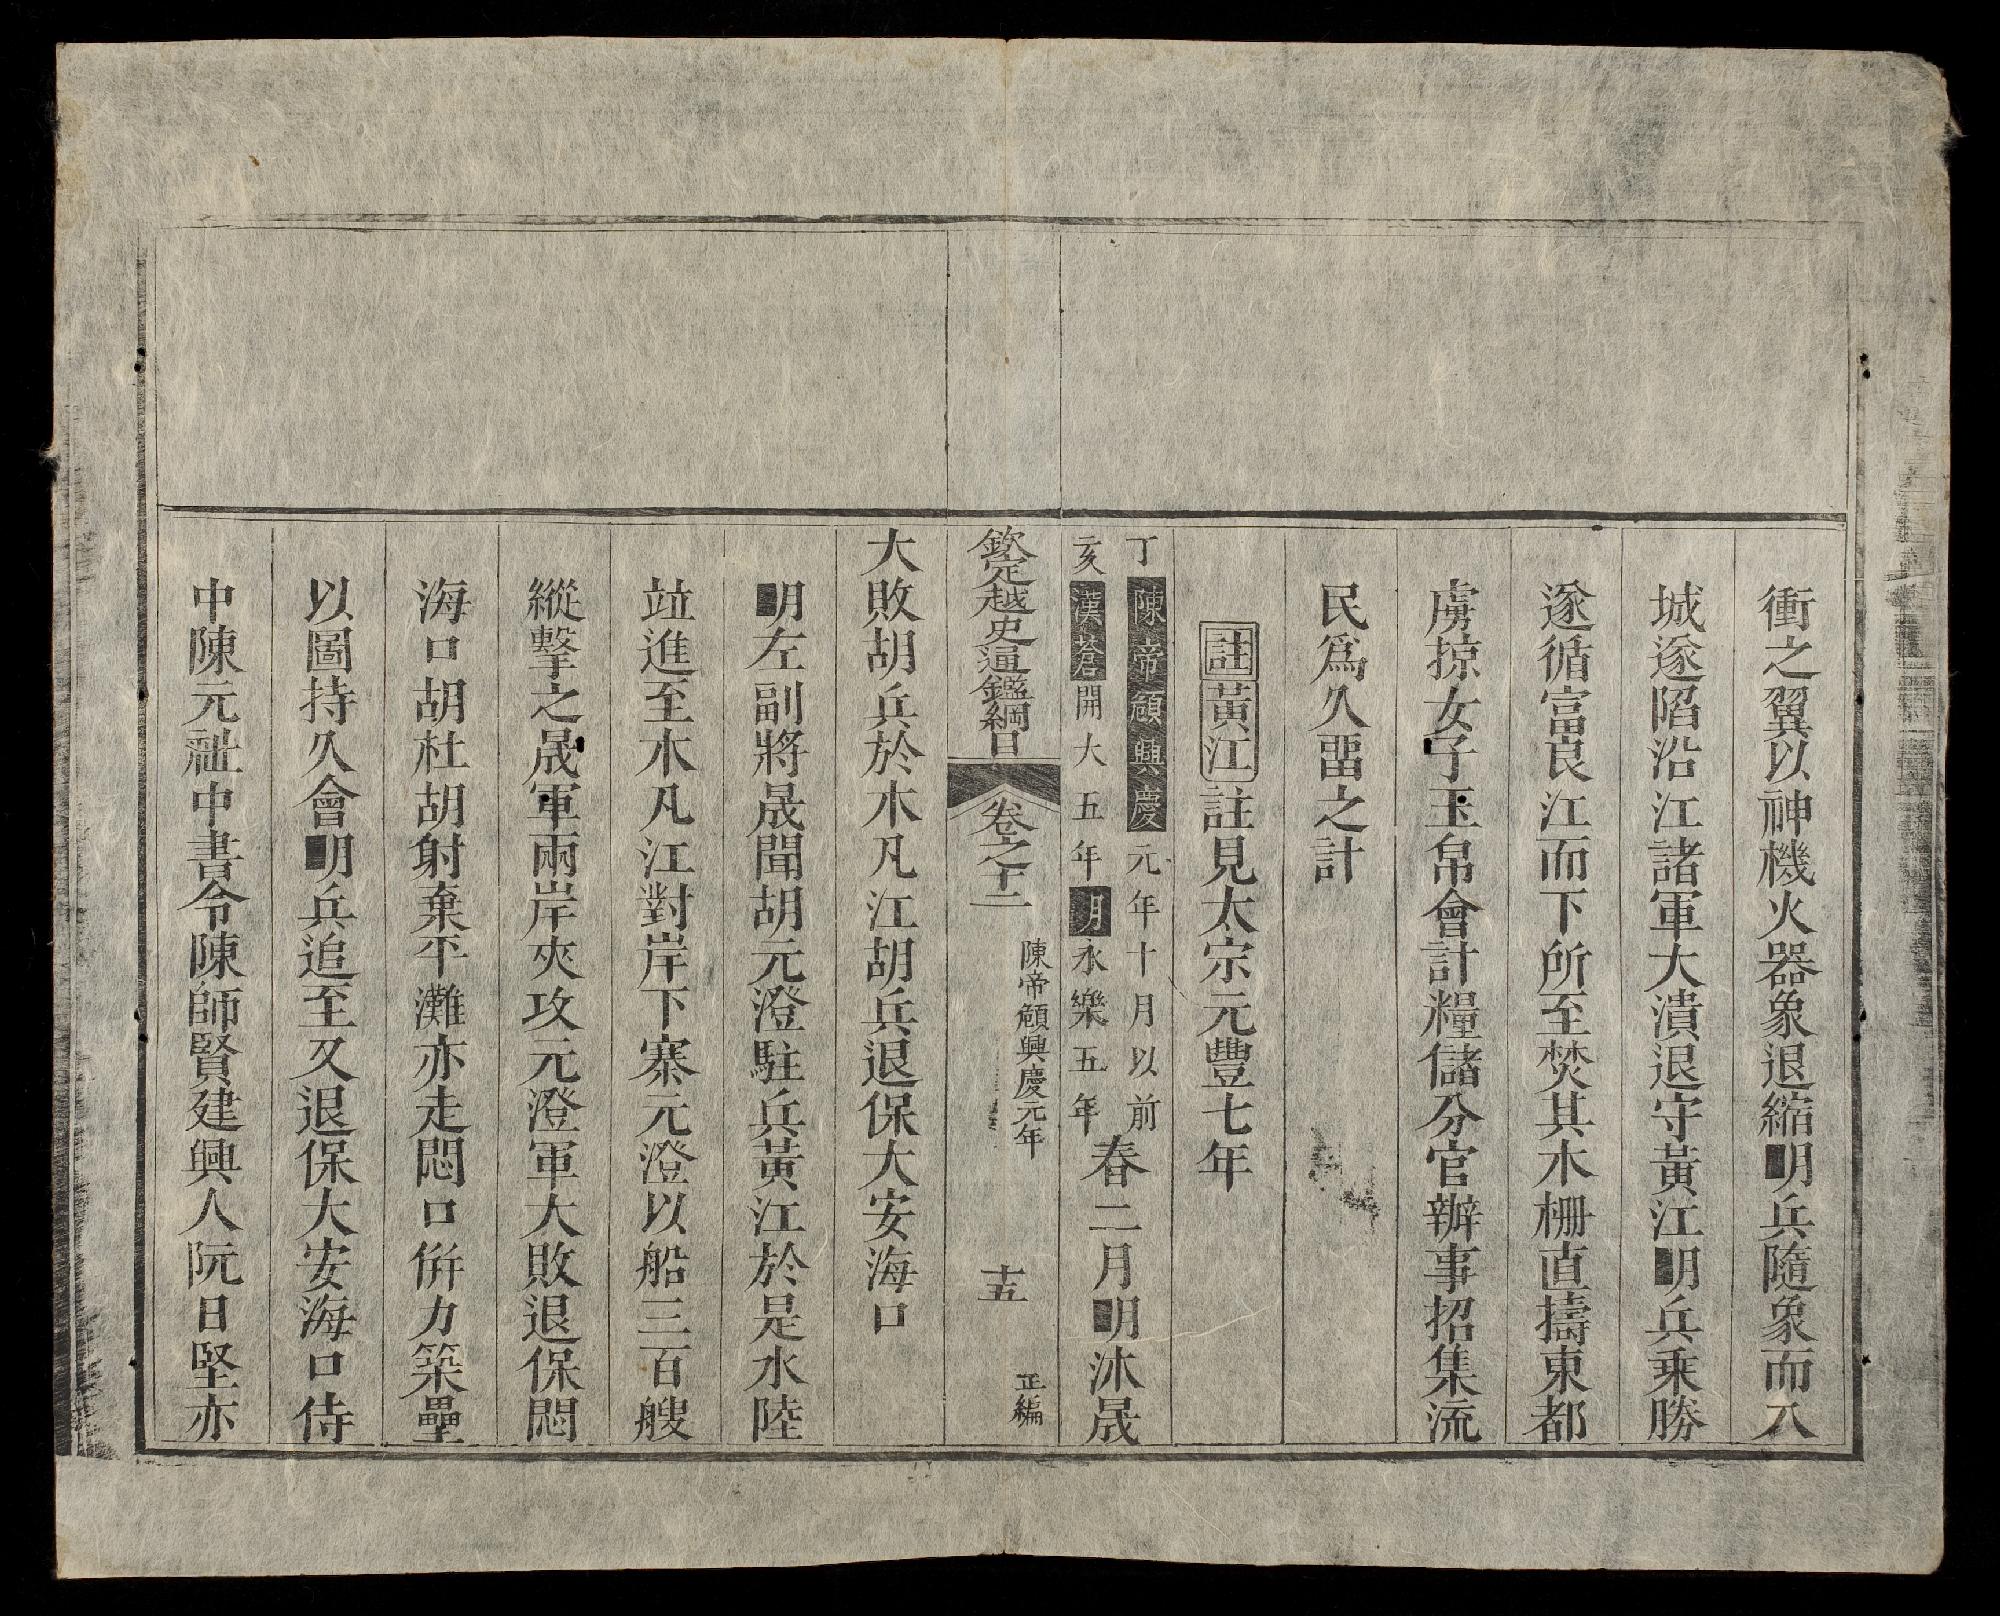 衝之翼以神機火器象退縮明兵隨象而入
城遂陷沿江諸軍大潰退守黃江明兵乘勝
遂循富良江而下所至焚其木柵直擣東都
虜掠女子玉帛會計糧儲分官辦事招集流
民爲久畱之計
註黃江註見太宗元豐七年
丁陳帝頠興慶元年十月以前
亥漢蒼開大五年明永樂五年
春二月明沐晟
欽定越史通鑑綱目
卷之十二
陳帝頠興慶元年
十五
正編
大敗胡兵於木凡江胡兵退保大安海口
明左副將晟聞胡元澄駐兵黃江於是水陸
竝進至木凡江對岸下寨元澄以船三百艘
縱擊之晟軍兩岸夾攻元澄軍大敗退保悶
海口胡杜胡射棄平灘亦走悶口併力築壘
以圖持久會明兵追至又退保大安海口侍
中陳元祉中書令陳師賢建興人阮日堅亦